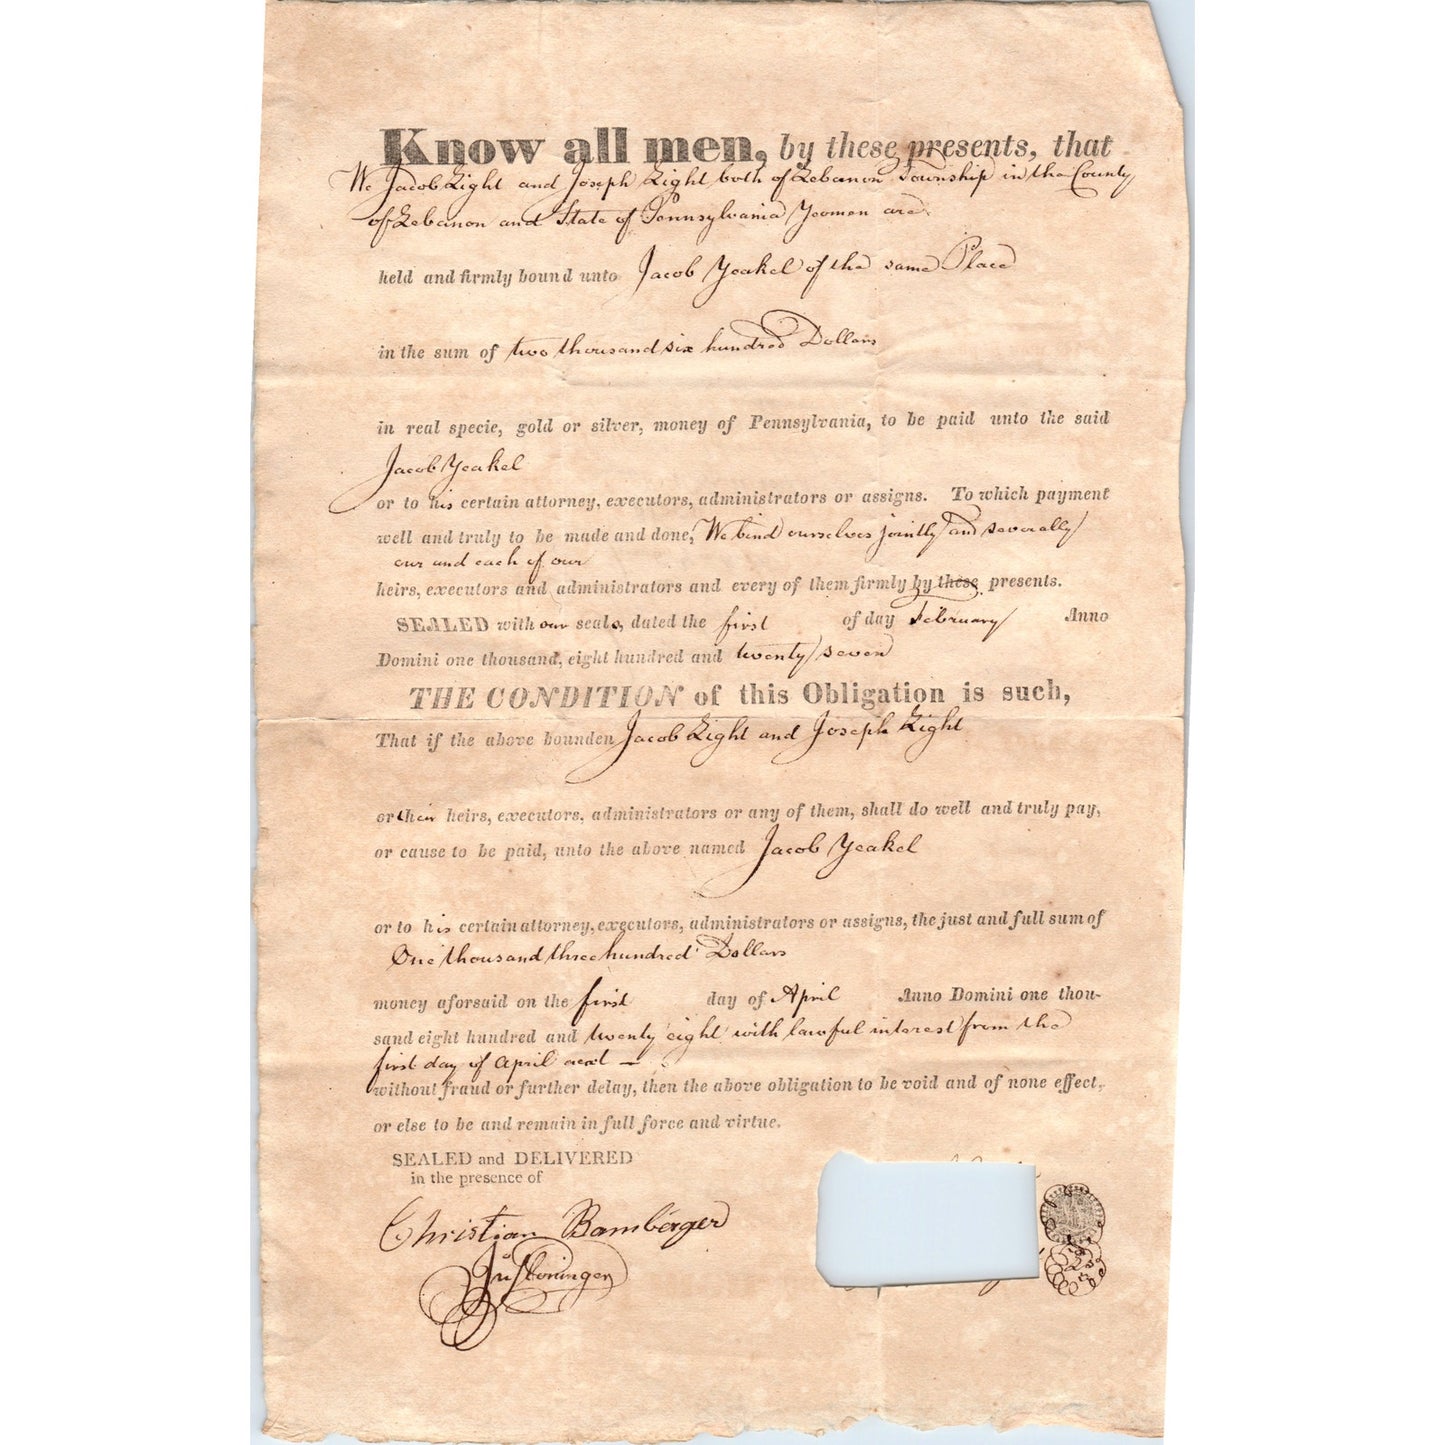 Know all men, by these presents, that
We Jacob Light and Joseph Light both of Lebanon Township in the County
of Lebanon and State of Pennsylvania Yeomen are
held and firmly bound unto Jacob Yeakel of the same Place
in the sum of two thousand six hundred Dollars
in real specie, gold or silver, money of Pennsylvania, to be paid unto the said
Jacob Yeakel
or to his certain attorney, executors, administrators or assigns. To which payment
well and truly to be made and done, We bind ourselves jointly and severally
our and each of our
heirs, executors and administrators and every of them firmly by these presents.
SEALED with our seals, dated the first of day February Anno
Domini one thousand, eight hundred and twenty seven
THE CONDITION of this Obligation is such,
That if the above bounden Jacob Light and Joseph Light
or their heirs, executors, administrators or any of them, shall do well and truly pay,
or cause to be paid, unto the above named Jacob Yeakel
or to his certain attorney, executors, administrators or assigns, the just and full sum of
One thousand three hundred Dollars
money aforsaid on the first day of April Anno Domini one thou-
sand eight hundred and twenty eight with lawful interest from the
first day of April next
without fraud or further delay, then the above obligation to be void and of none effect,
or else to be and remain in full force and virtue.
SEALED and DELIVERED
in the presence of
Christian Bamberger